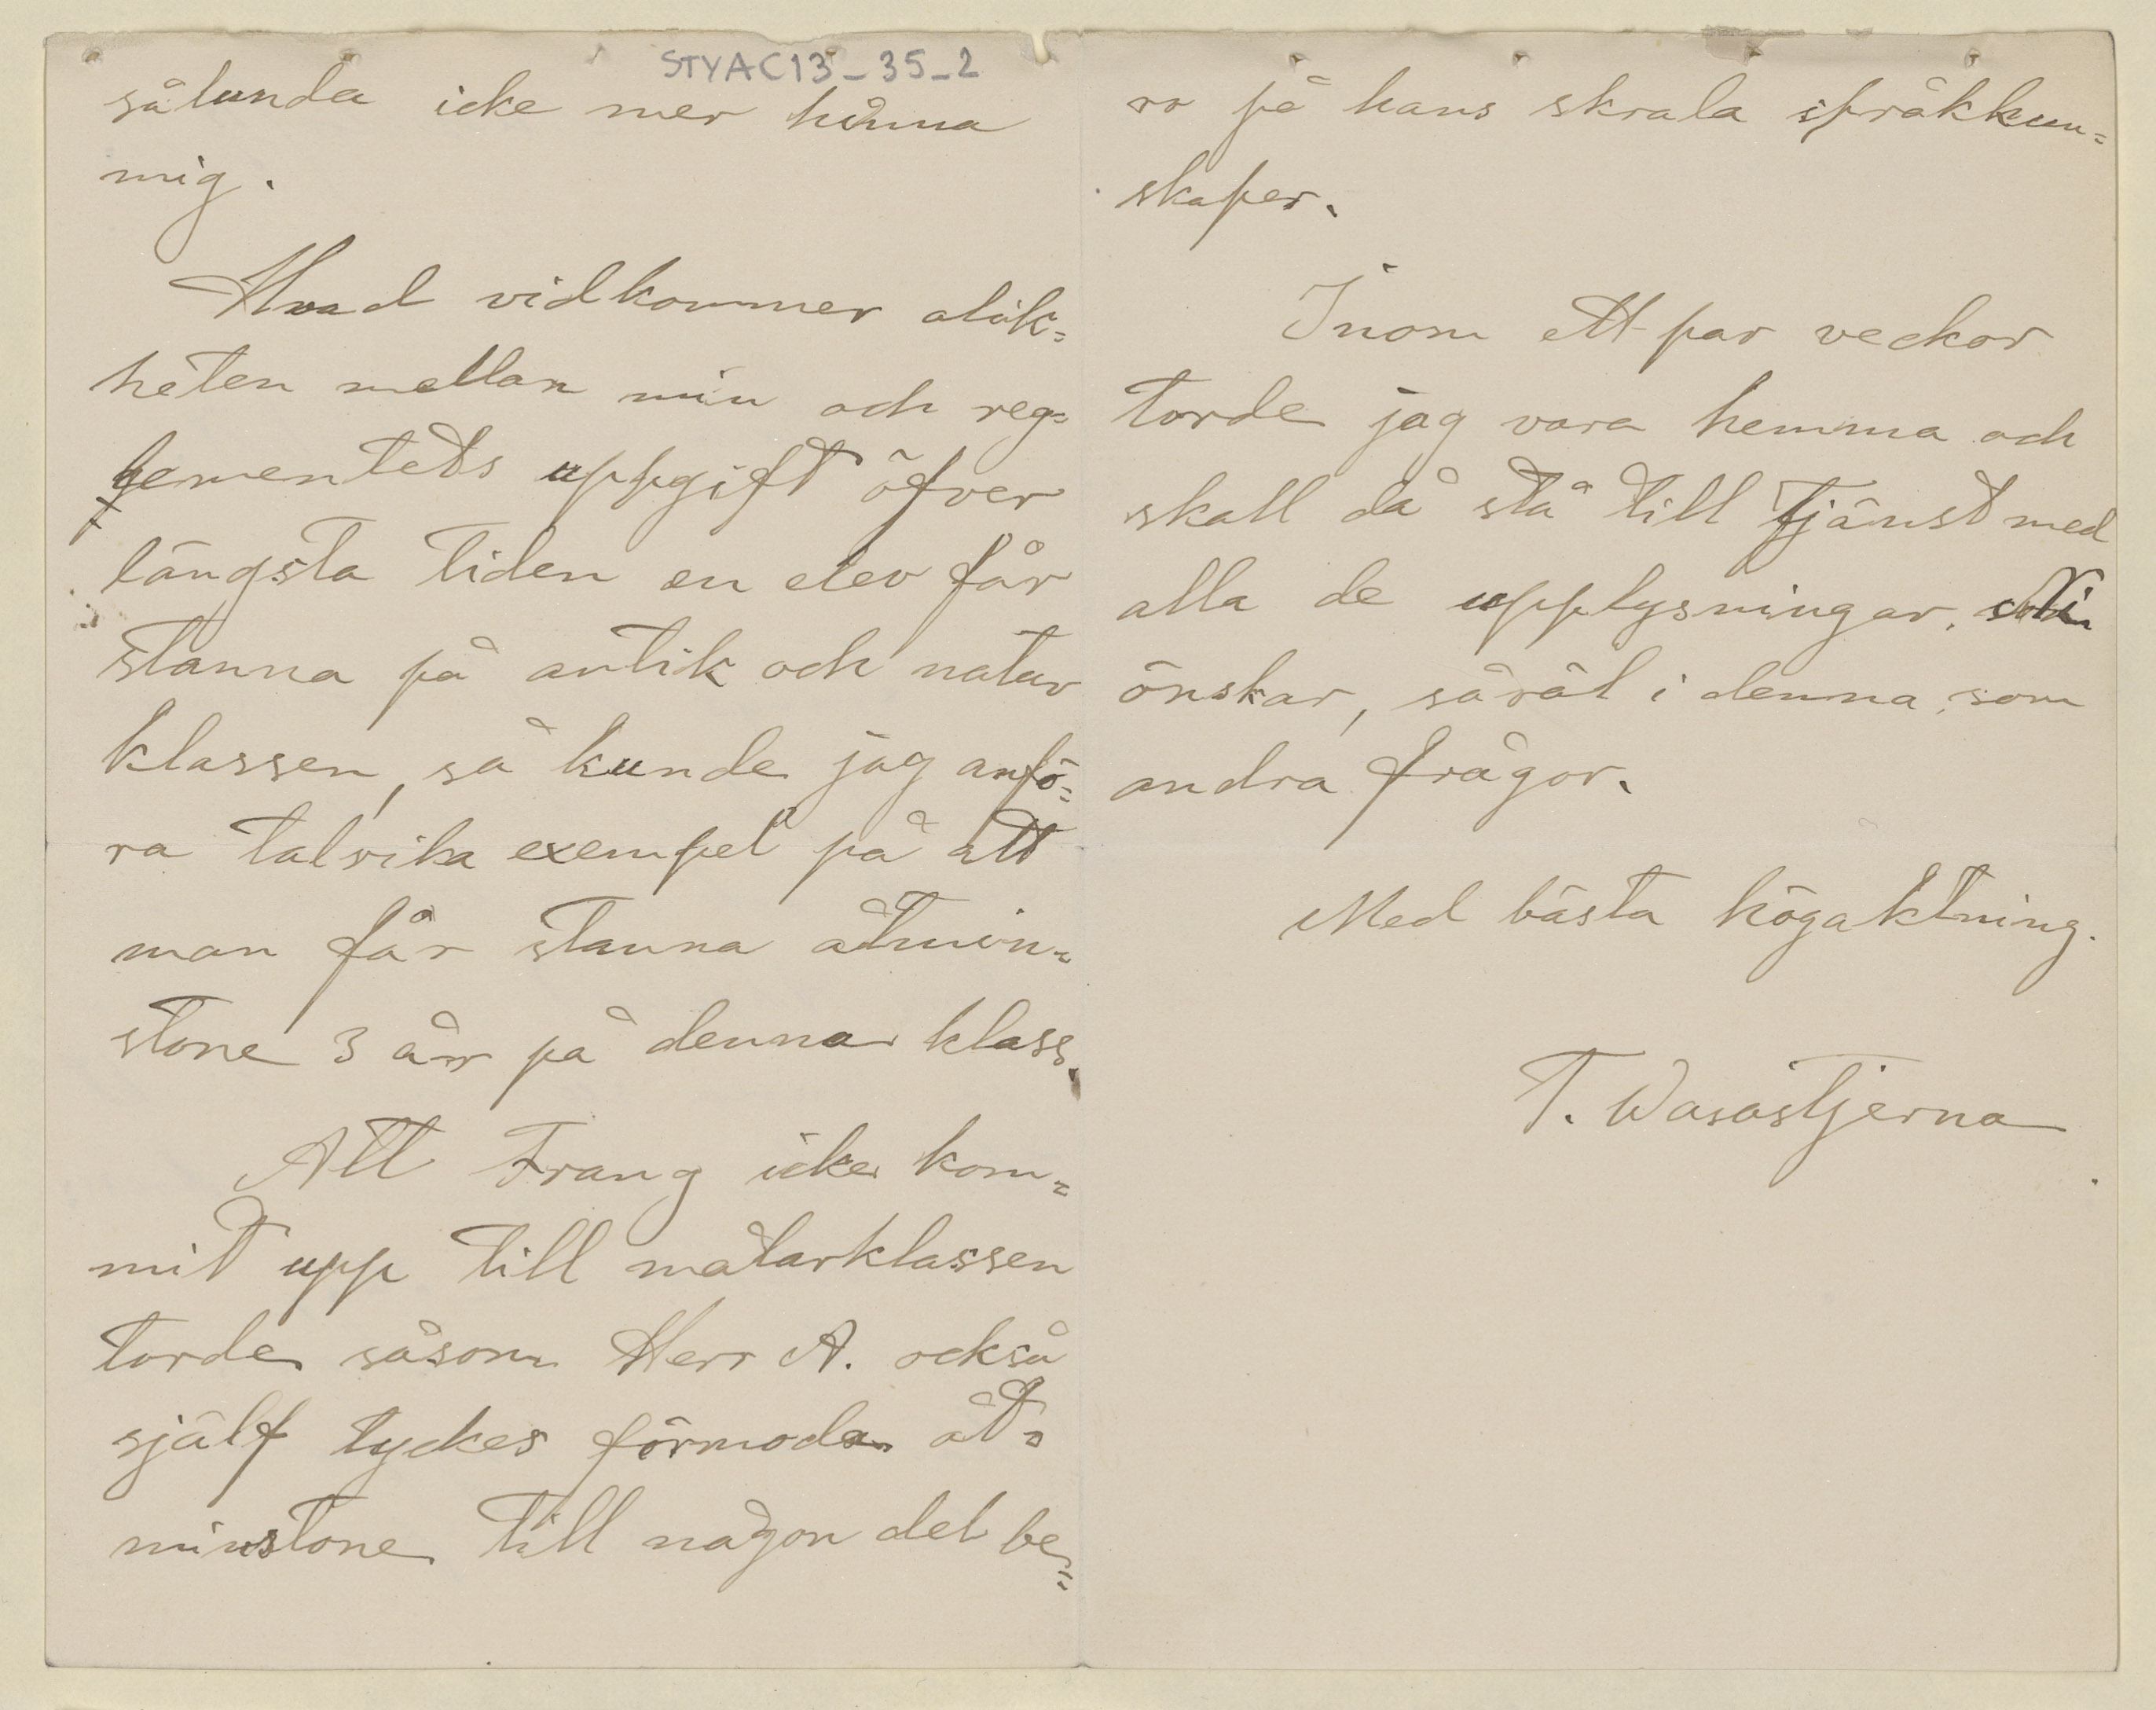 STYAC13_35_2
sålunda icke mer hinna
mig.
Hvad vidkommer olik=
heten mellan min och reg=
lementets uppgift öfver
längsta tiden en elev får
stanna på antik och natur
klassen, så kunde jag anfö=
ra talrika exempel på att
man får stanna åtmin=
stone 3 år på denna klass.
Att Frang icke kom=
mit upp till målarklassen
torde såsom Herr A. också
själf tyckes förmoda åt=
minstone till någon del be=
ro på hans skrala språkkun=
skaper.
Inom ett par veckor
torde jag vara hemma och
skall då stå till tjänst med
alla de upplysningar, Ni
önskar, såväl i denna som
andra frågor.
Med bästa högaktning.
T. Wasastjerna